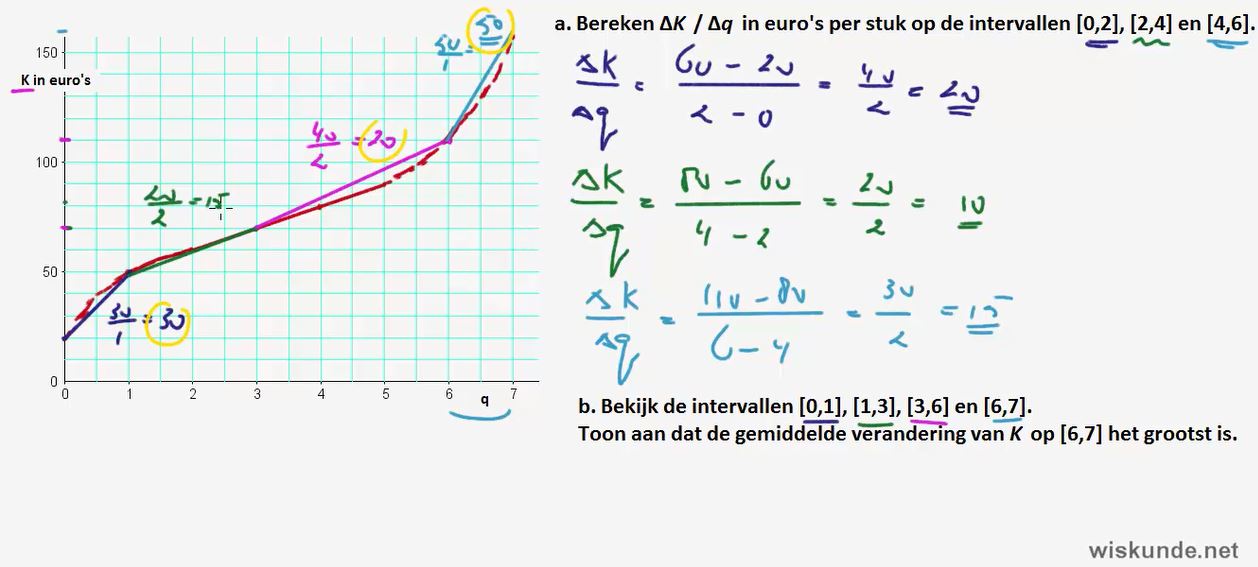 a. Bereken ΔK / Δq in euro's per stuk op de intervallen [0,2], [2,4] en [4,6].
150
K in euro's
100
50
0
0 1 2 3 4 5 6 q 7
50/1 = 50
40/2 = 20
20/2 = 15
30/1 = 30
ΔK/Δq = 60 - 20 / 2 - 0 = 40/2 = 20
ΔK/Δq = 80 - 60 / 4 - 2 = 20/2 = 10
ΔK/Δq = 110 - 80 / 6 - 4 = 30/2 = 15
b. Bekijk de intervallen [0,1], [1,3], [3,6] en [6,7].
Toon aan dat de gemiddelde verandering van K op [6,7] het grootst is.
wiskunde.net